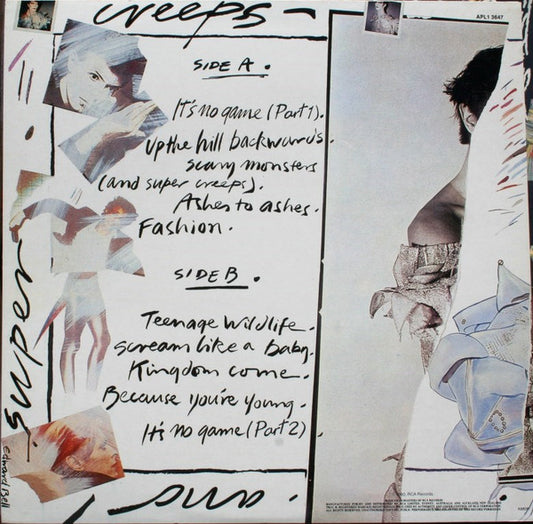 creeps -
APL1 3647
SIDE A .
It's no game (Part 1).
Up the hill backwards.
scary monsters
(and super creeps).
Ashes to ashes.
Fashion.
SIDE B .
Teenage wildlife.
scream like a baby.
Kingdom come.
Because you're young.
It's no game (Part 2).
super
and
edward Bell
RCA Records